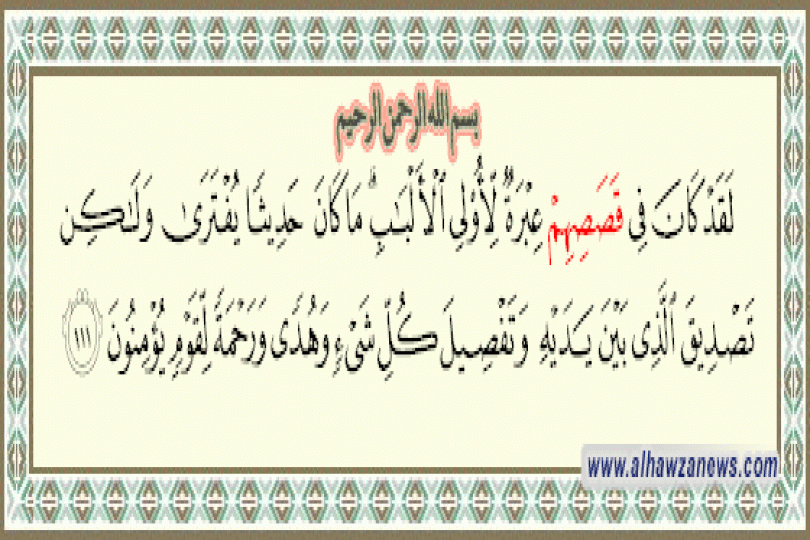 بسم الله الرحمن الرحيم
لَقَدْ كَانَ فِى قَصَصِهِمْ عِبْرَةٌ لِّأُو۟لِى ٱلْأَلْبَـٰبِ ۗ مَا كَانَ حَدِيثًا يُفْتَرَىٰ وَلَـٰكِن
تَصْدِيقَ ٱلَّذِى بَيْنَ يَدَيْهِ وَتَفْصِيلَ كُلِّ شَىْءٍ وَهُدًى وَرَحْمَةً لِّقَوْمٍ يُؤْمِنُونَ ١١١
www.alhawzanews.com